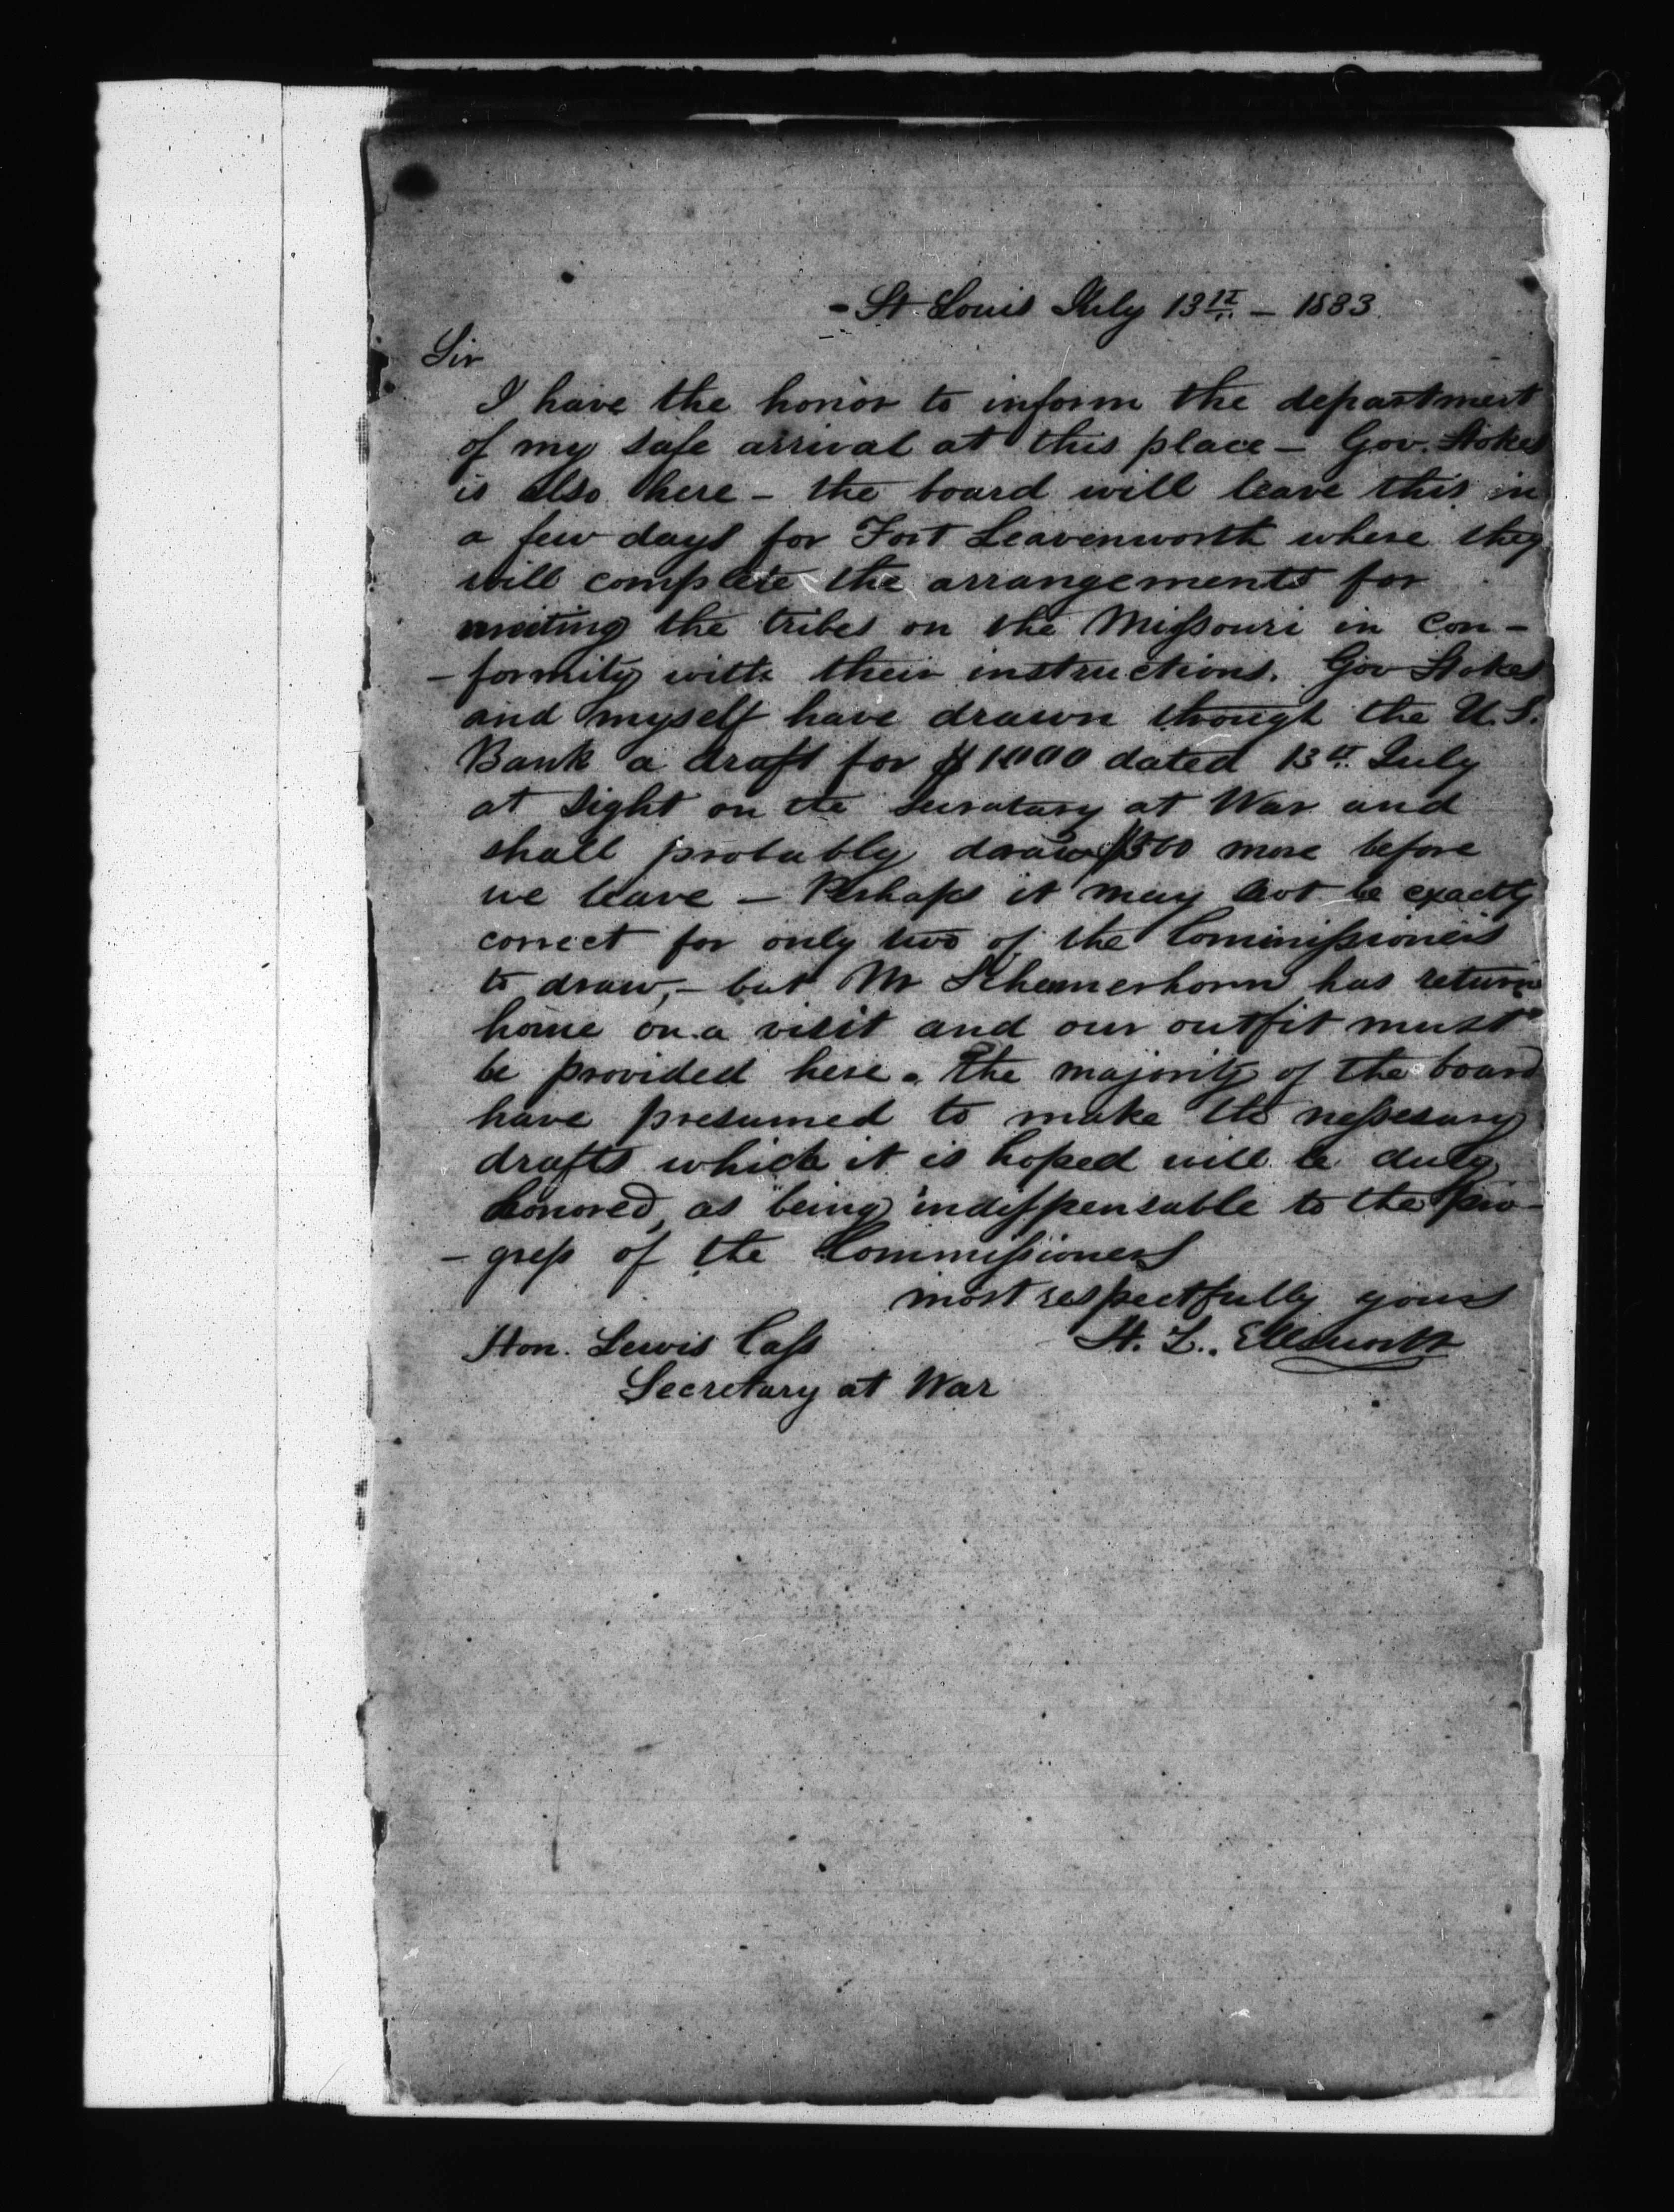 - St. Louis July 13th. - 1833.
Sir
I have the honor to inform the department
of my safe arrival at this place - Gov. Stokes
is also here - the board will leave this in
a few days for Fort Leavenworth where they
will complete the arrangements for
meeting the tribes on the Missouri in con-
- formity with their instructions. Gov Stokes
and myself have drawn through the U.S.
Bank a draft for $1000 dated 13th. July
at sight on the Secratary at War and
shall probably draw $500 more before
we leave - Perhaps it may not be exactly
correct for only two of the Commissioners
to draw, - but Mr Schemerhorn has return
home on a visit and our outfit must
be provided here. The majority of the board
have presumed to make the nessesary
drafts which it is hoped will be duly
honored, as being indisspensable to the pro-
- gress of the Commissioners
most respectfully yours
Hon. Lewis Cass H. L. Ellsworth
Secretary at War